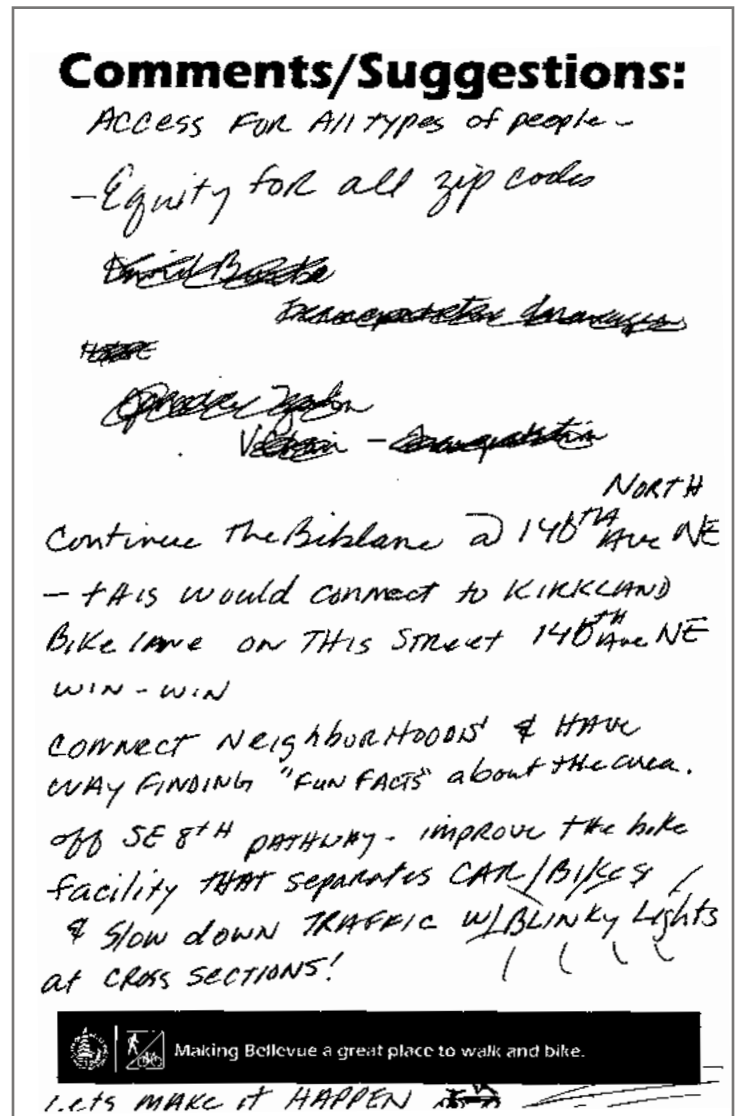 Comments/Suggestions:
ACCESS FOR All types of people -
- Equity for all zip codes
NORTH
Continue the Bikelane @ 140TH Ave NE
- this would connect to KIRKLAND
Bike lane on THis Street 140TH Ave NE
WIN - WIN
CONNECT NeighborHOODS & HAVE
WAY FINDING "FUN FACTS" about the area.
off SE 8TH PATHWAY - improve the bike
facility THAT separates CAR/BIKES
& slow down TRAFFIC W/BLINKY Lights
at CROSS SECTIONS!
Making Bellevue a great place to walk and bike.
Lets MAKE it HAPPEN